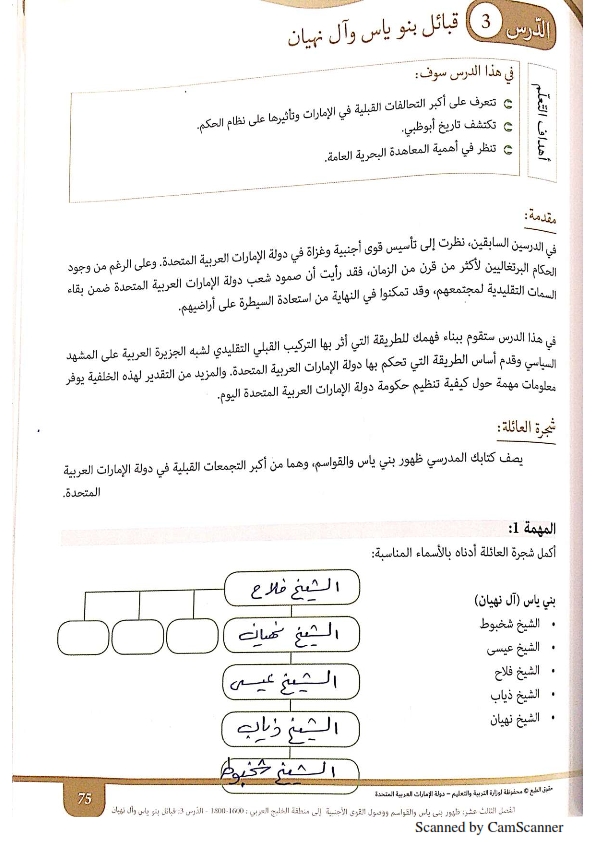 الدّرس 3 قبائل بنو ياس وآل نهيان
أهداف التعلّم
في هذا الدرس سوف:
تتعرف على أكبر التحالفات القبلية في الإمارات وتأثيرها على نظام الحكم.
تكتشف تاريخ أبوظبي.
تنظر في أهمية المعاهدة البحرية العامة.
مقدمة:
في الدرسين السابقين، نظرت إلى تأسيس قوى أجنبية وغزاة في دولة الإمارات العربية المتحدة. وعلى الرغم من وجود
الحكام البرتغاليين لأكثر من قرن من الزمان، فقد رأيت أن صمود شعب دولة الإمارات العربية المتحدة ضمن بقاء
السمات التقليدية لمجتمعهم، وقد تمكنوا في النهاية من استعادة السيطرة على أراضيهم.
في هذا الدرس ستقوم ببناء فهمك للطريقة التي أثر بها التركيب القبلي التقليدي لشبه الجزيرة العربية على المشهد
السياسي وقدم أساس الطريقة التي تحكم بها دولة الإمارات العربية المتحدة. والمزيد من التقدير لهذه الخلفية يوفر
معلومات مهمة حول كيفية تنظيم حكومة دولة الإمارات العربية المتحدة اليوم.
شجرة العائلة:
يصف كتابك المدرسي ظهور بني ياس والقواسم، وهما من أكبر التجمعات القبلية في دولة الإمارات العربية
المتحدة.
المهمة 1:
أكمل شجرة العائلة أدناه بالأسماء المناسبة:
بني ياس (آل نهيان)
• الشيخ شخبوط
• الشيخ عيسى
• الشيخ فلاح
• الشيخ ذياب
• الشيخ نهيان
الشيخ فلاح
الشيخ نهيان
الشيخ عيسى
الشيخ ذياب
الشيخ شخبوط
حقوق الطبع © محفوظة لوزارة التربية والتعليم – دولة الإمارات العربية المتحدة
الفصل الثالث عشر: ظهور بني ياس والقواسم ووصول القوى الأجنبية إلى منطقة الخليج العربي: 1600-1800 - الدرس 3: قبائل بنو ياس وآل نهيان
75
Scanned by CamScanner